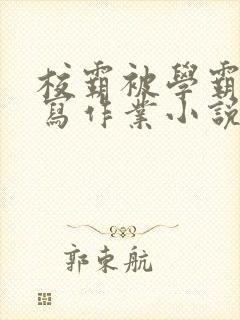 校霸被學霸
寫作業小説
郭東航